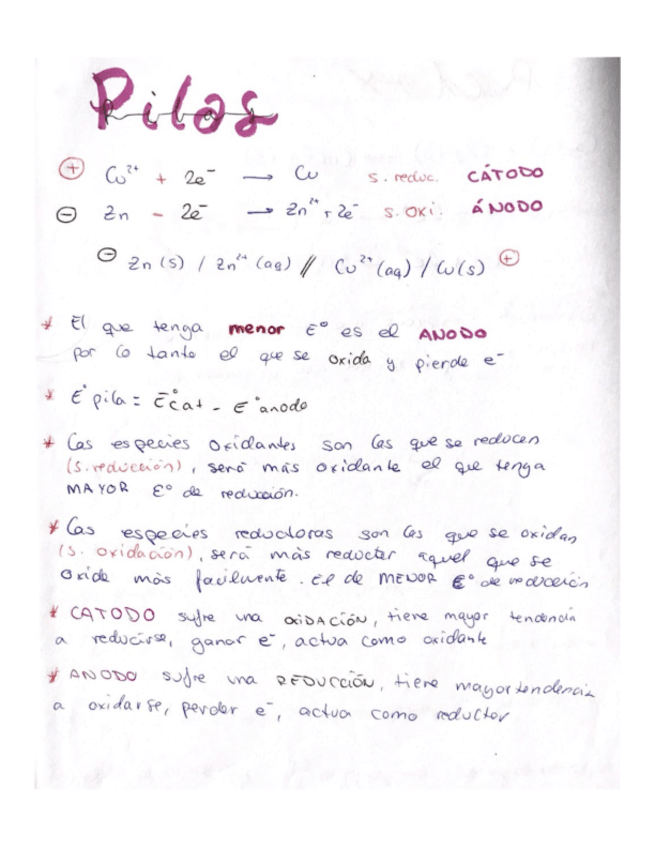 Pilas
⊕ Cu²⁺ + 2e⁻ → Cu s. reduc. CÁTODO
⊖ Zn - 2e⁻ → Zn²⁺ + 2e⁻ s. oxi. ÁNODO
⊖ Zn (s) / Zn²⁺ (aq) // Cu²⁺ (aq) / Cu(s) ⊕
* El que tenga menor E° es el ANODO
por lo tanto el que se oxida y pierde e⁻
* E° pila = E°cat - E°anodo
* Las especies oxidantes son las que se reducen
(s. reducción), será más oxidante el que tenga
MAYOR E° de reducción.
* Las especies reductoras son las que se oxidan
(s. oxidación), será más reductor aquel que se
oxide más facilmente. El de MENOR E° de reducción
* CATODO sufre una OXIDACIÓN, tiene mayor tendencia
a reducirse, ganar e⁻, actua como oxidante
* ANODO sufre una REDUCCIÓN, tiene mayor tendencia
a oxidarse, perder e⁻, actua como reductor